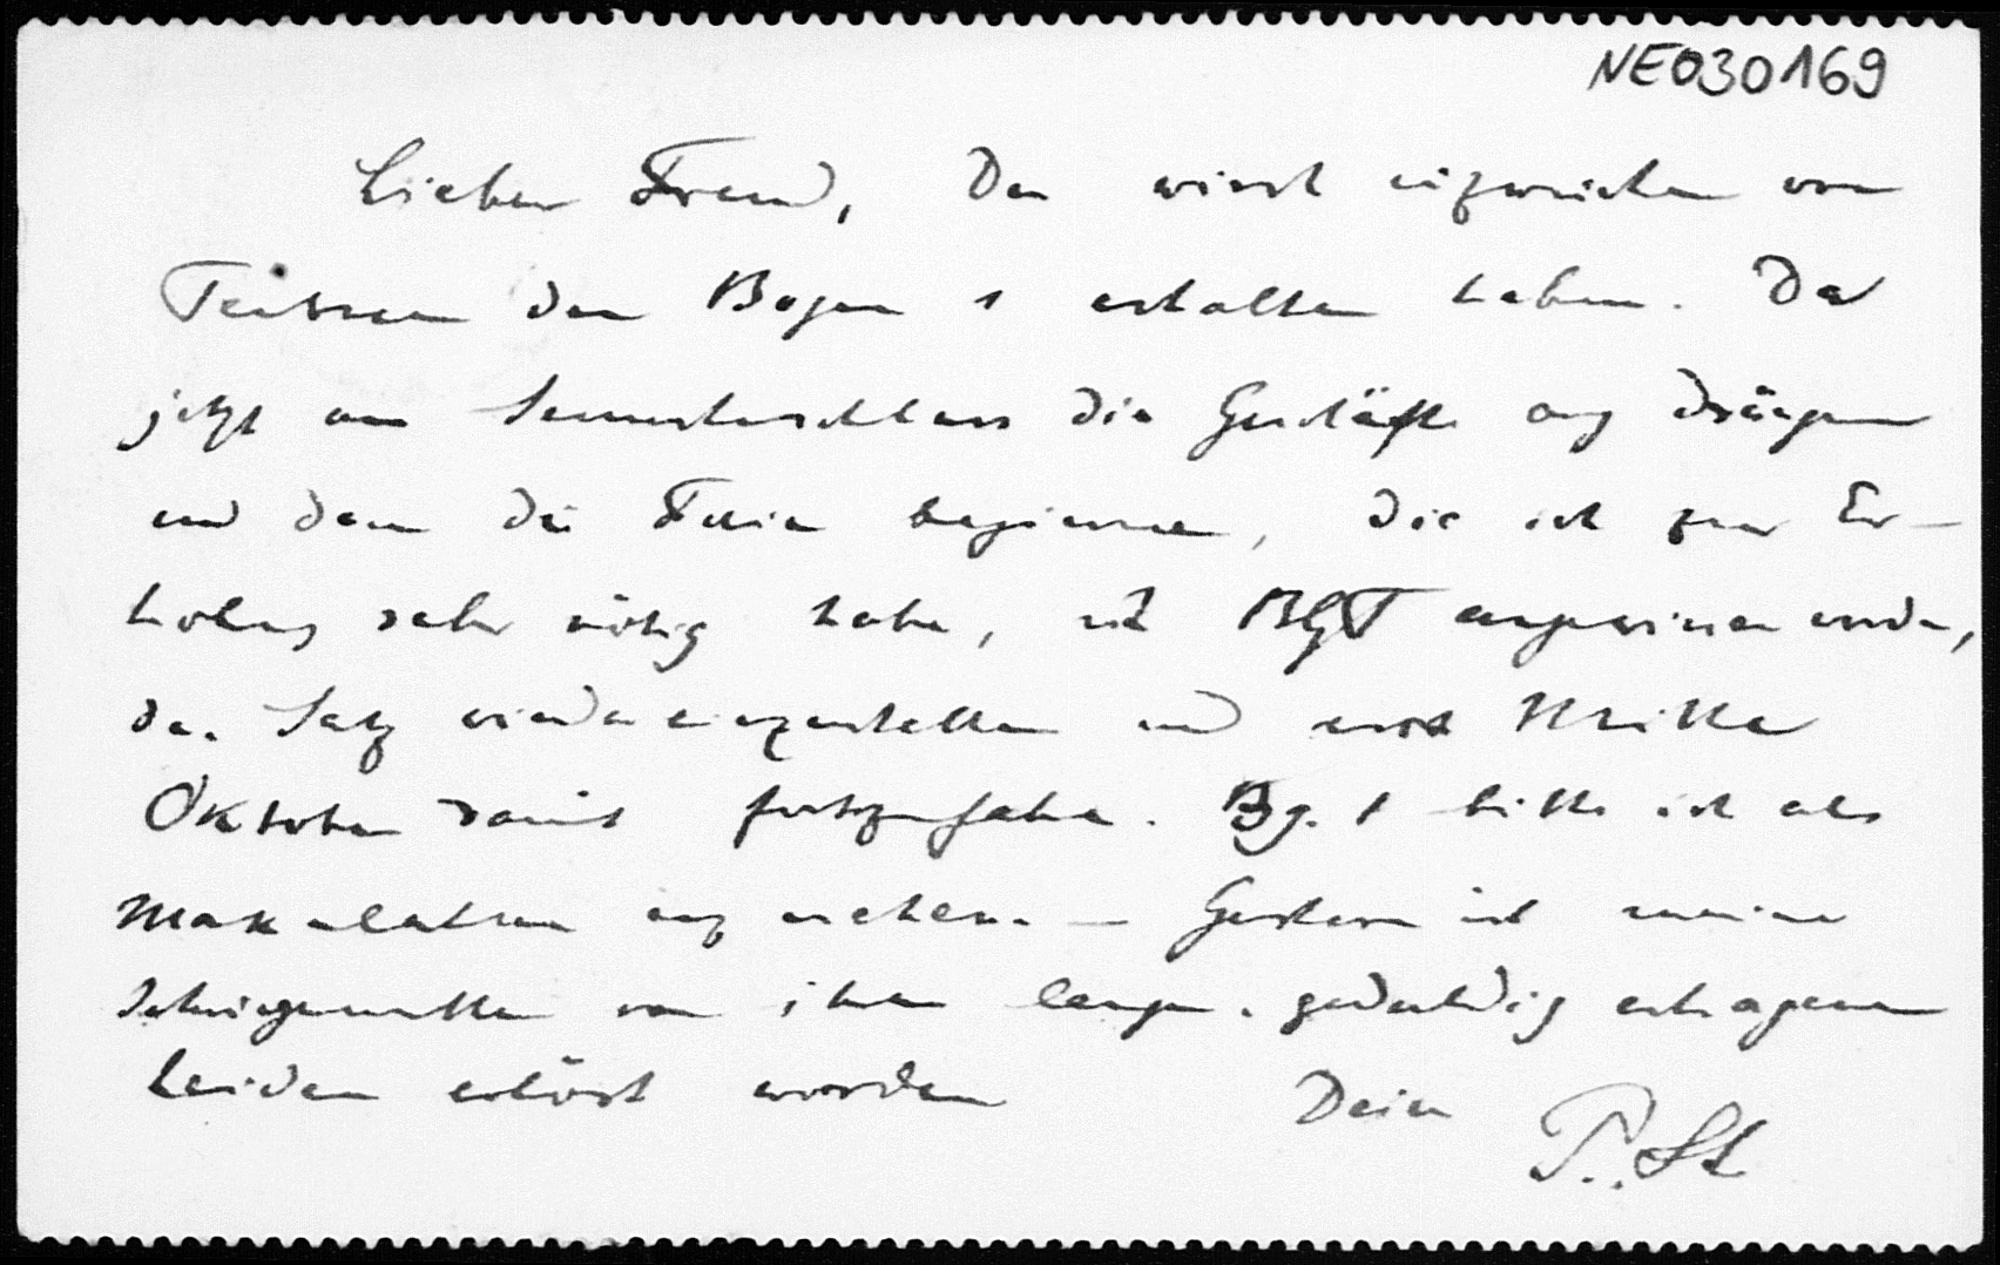 NE030169
Lieber Freund, Du wirst inzwischen von
Teubner den Bogen 1 erhalten haben. Da
jetzt am Semesterschluss die Geschäfte arg drängen
und dann die Ferien beginnen, die ich zur Er-
holung sehr nötig habe, ist BGT angewiesen worden,
den Satz wieder einzustellen und erst Mitte
Oktober damit fortzufahren. Bg. 1 bitte ich als
Makulatur anzusehen. — Gestern ist meine
Schwiegermutter von ihren langen, geduldig ertragenen
Leiden erlöst worden Dein P. St